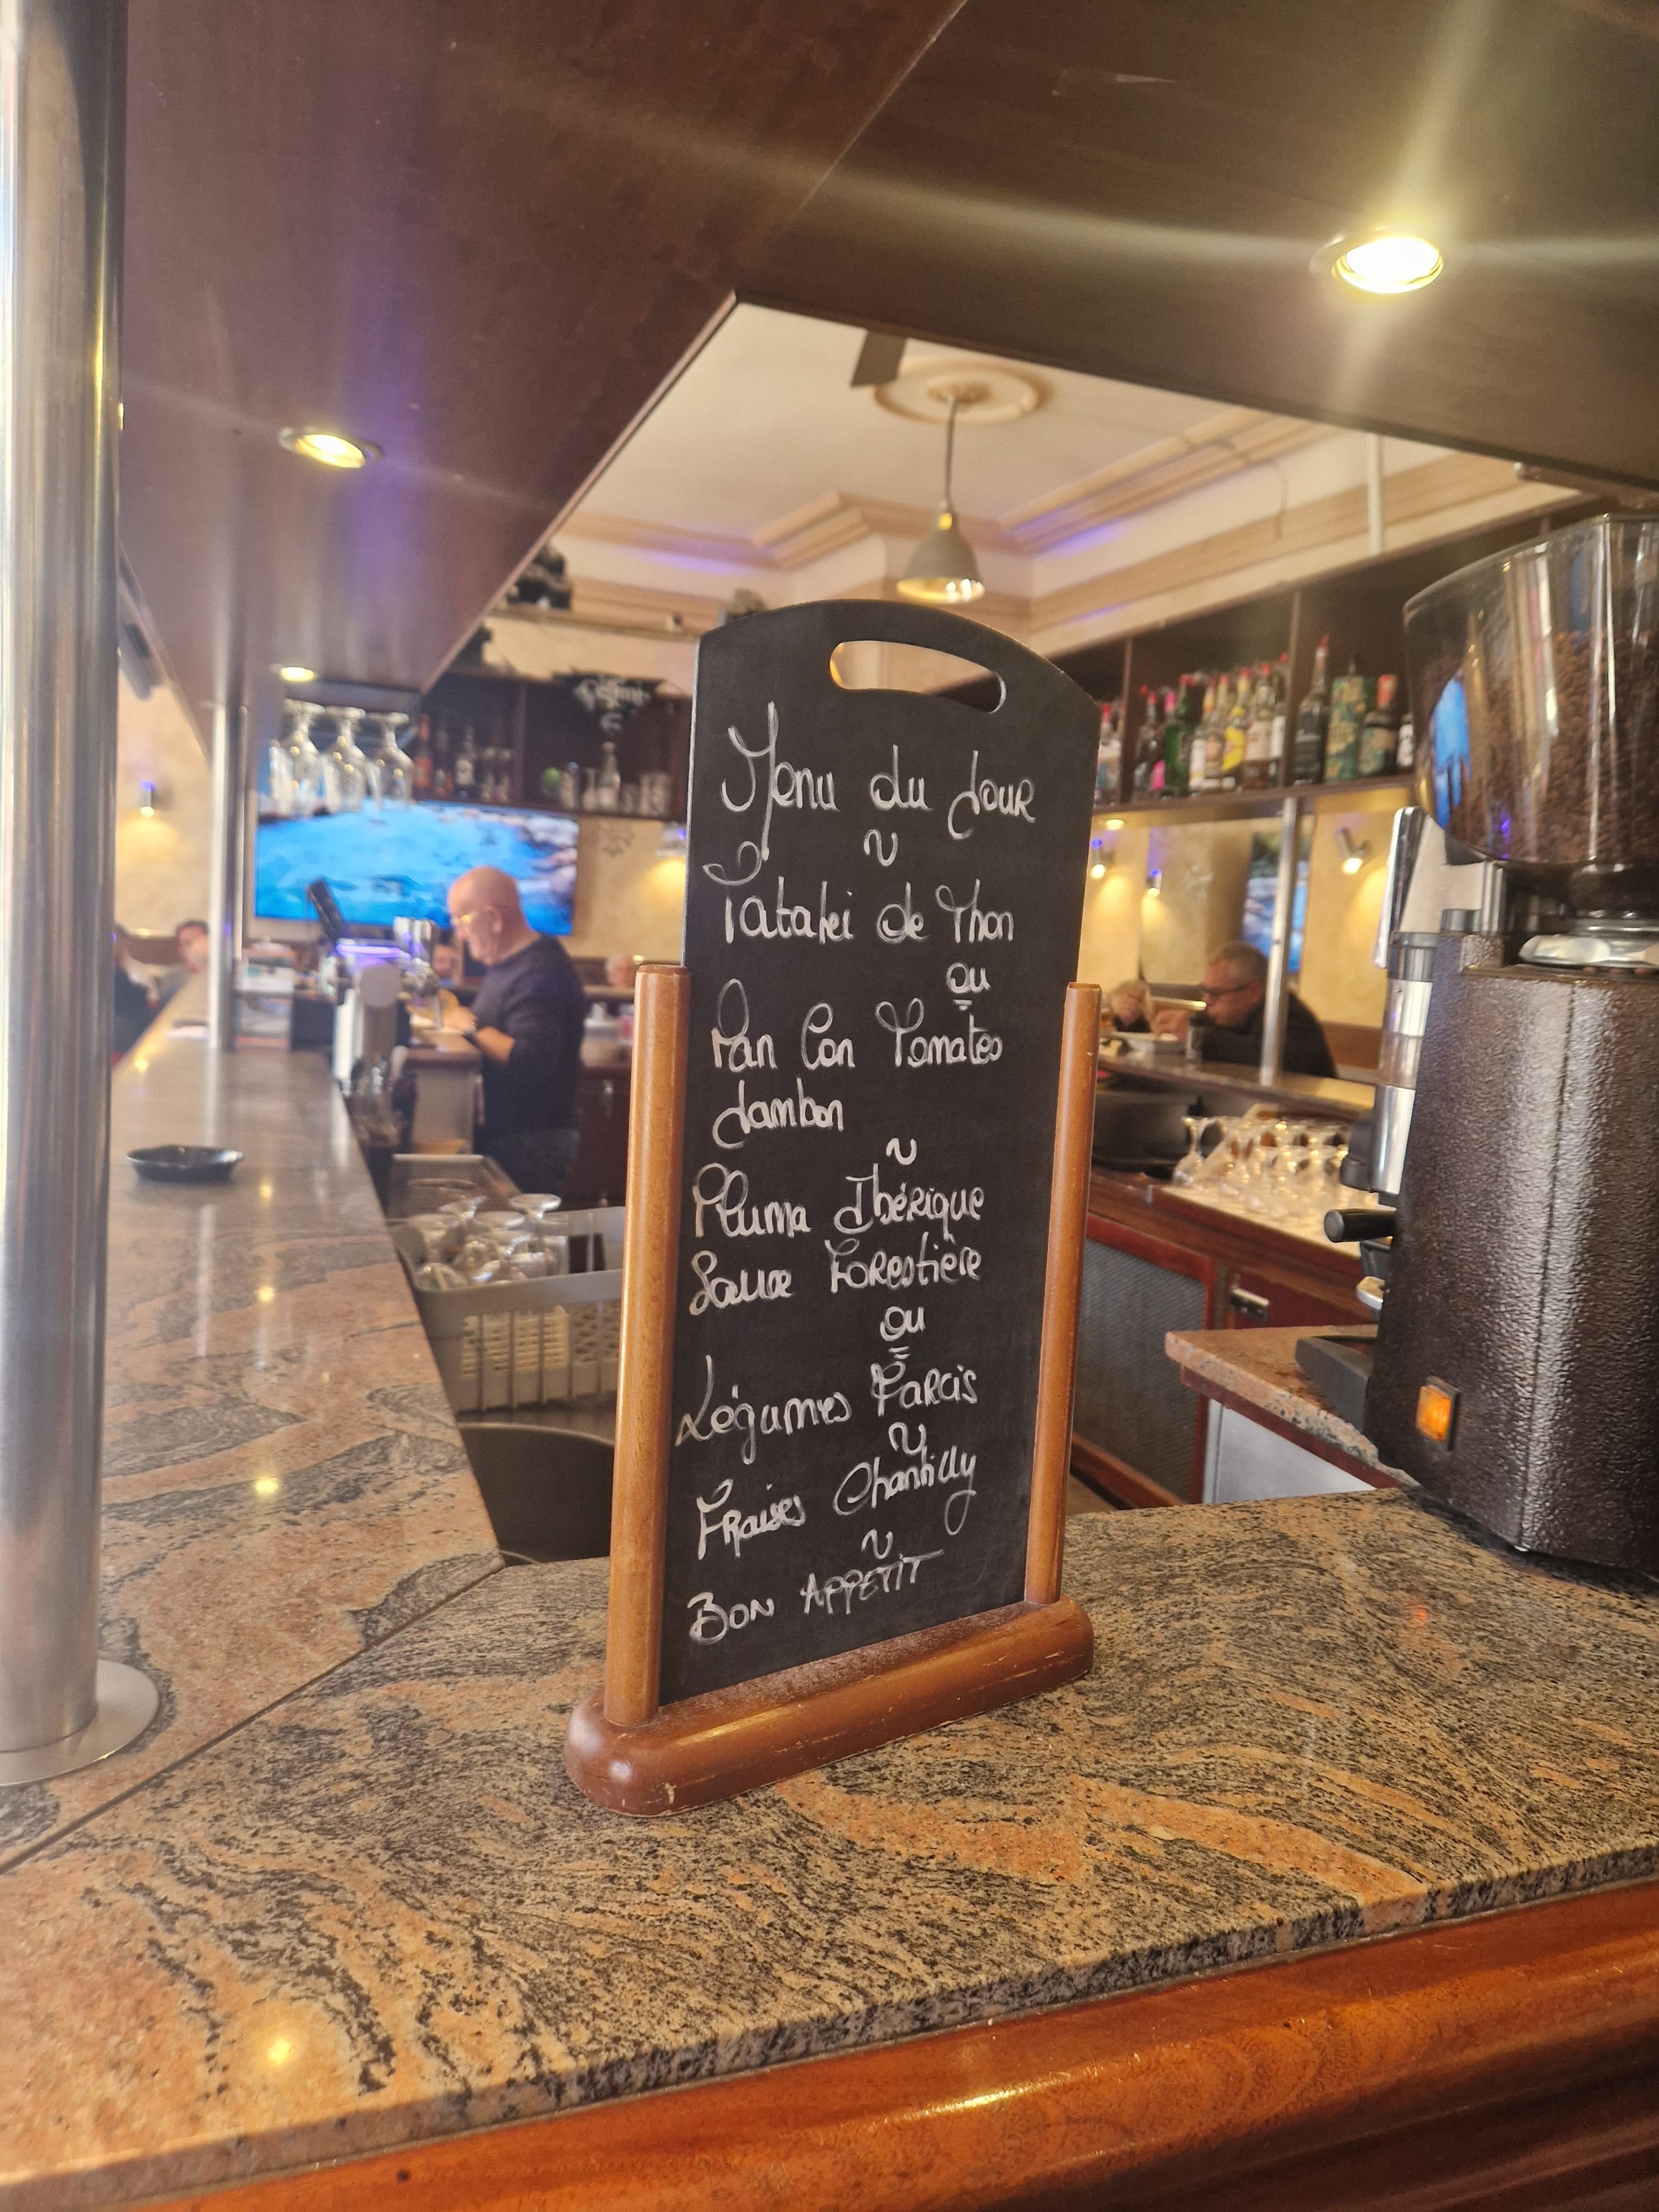 Menu du Jour
~
Tataki de Thon
ou
Pan Con Tomates
Jambon
~
Pluma Ibérique
Sauce Forestière
ou
Légumes Farcis
~
Fraises Chantilly
~
BON APPETIT